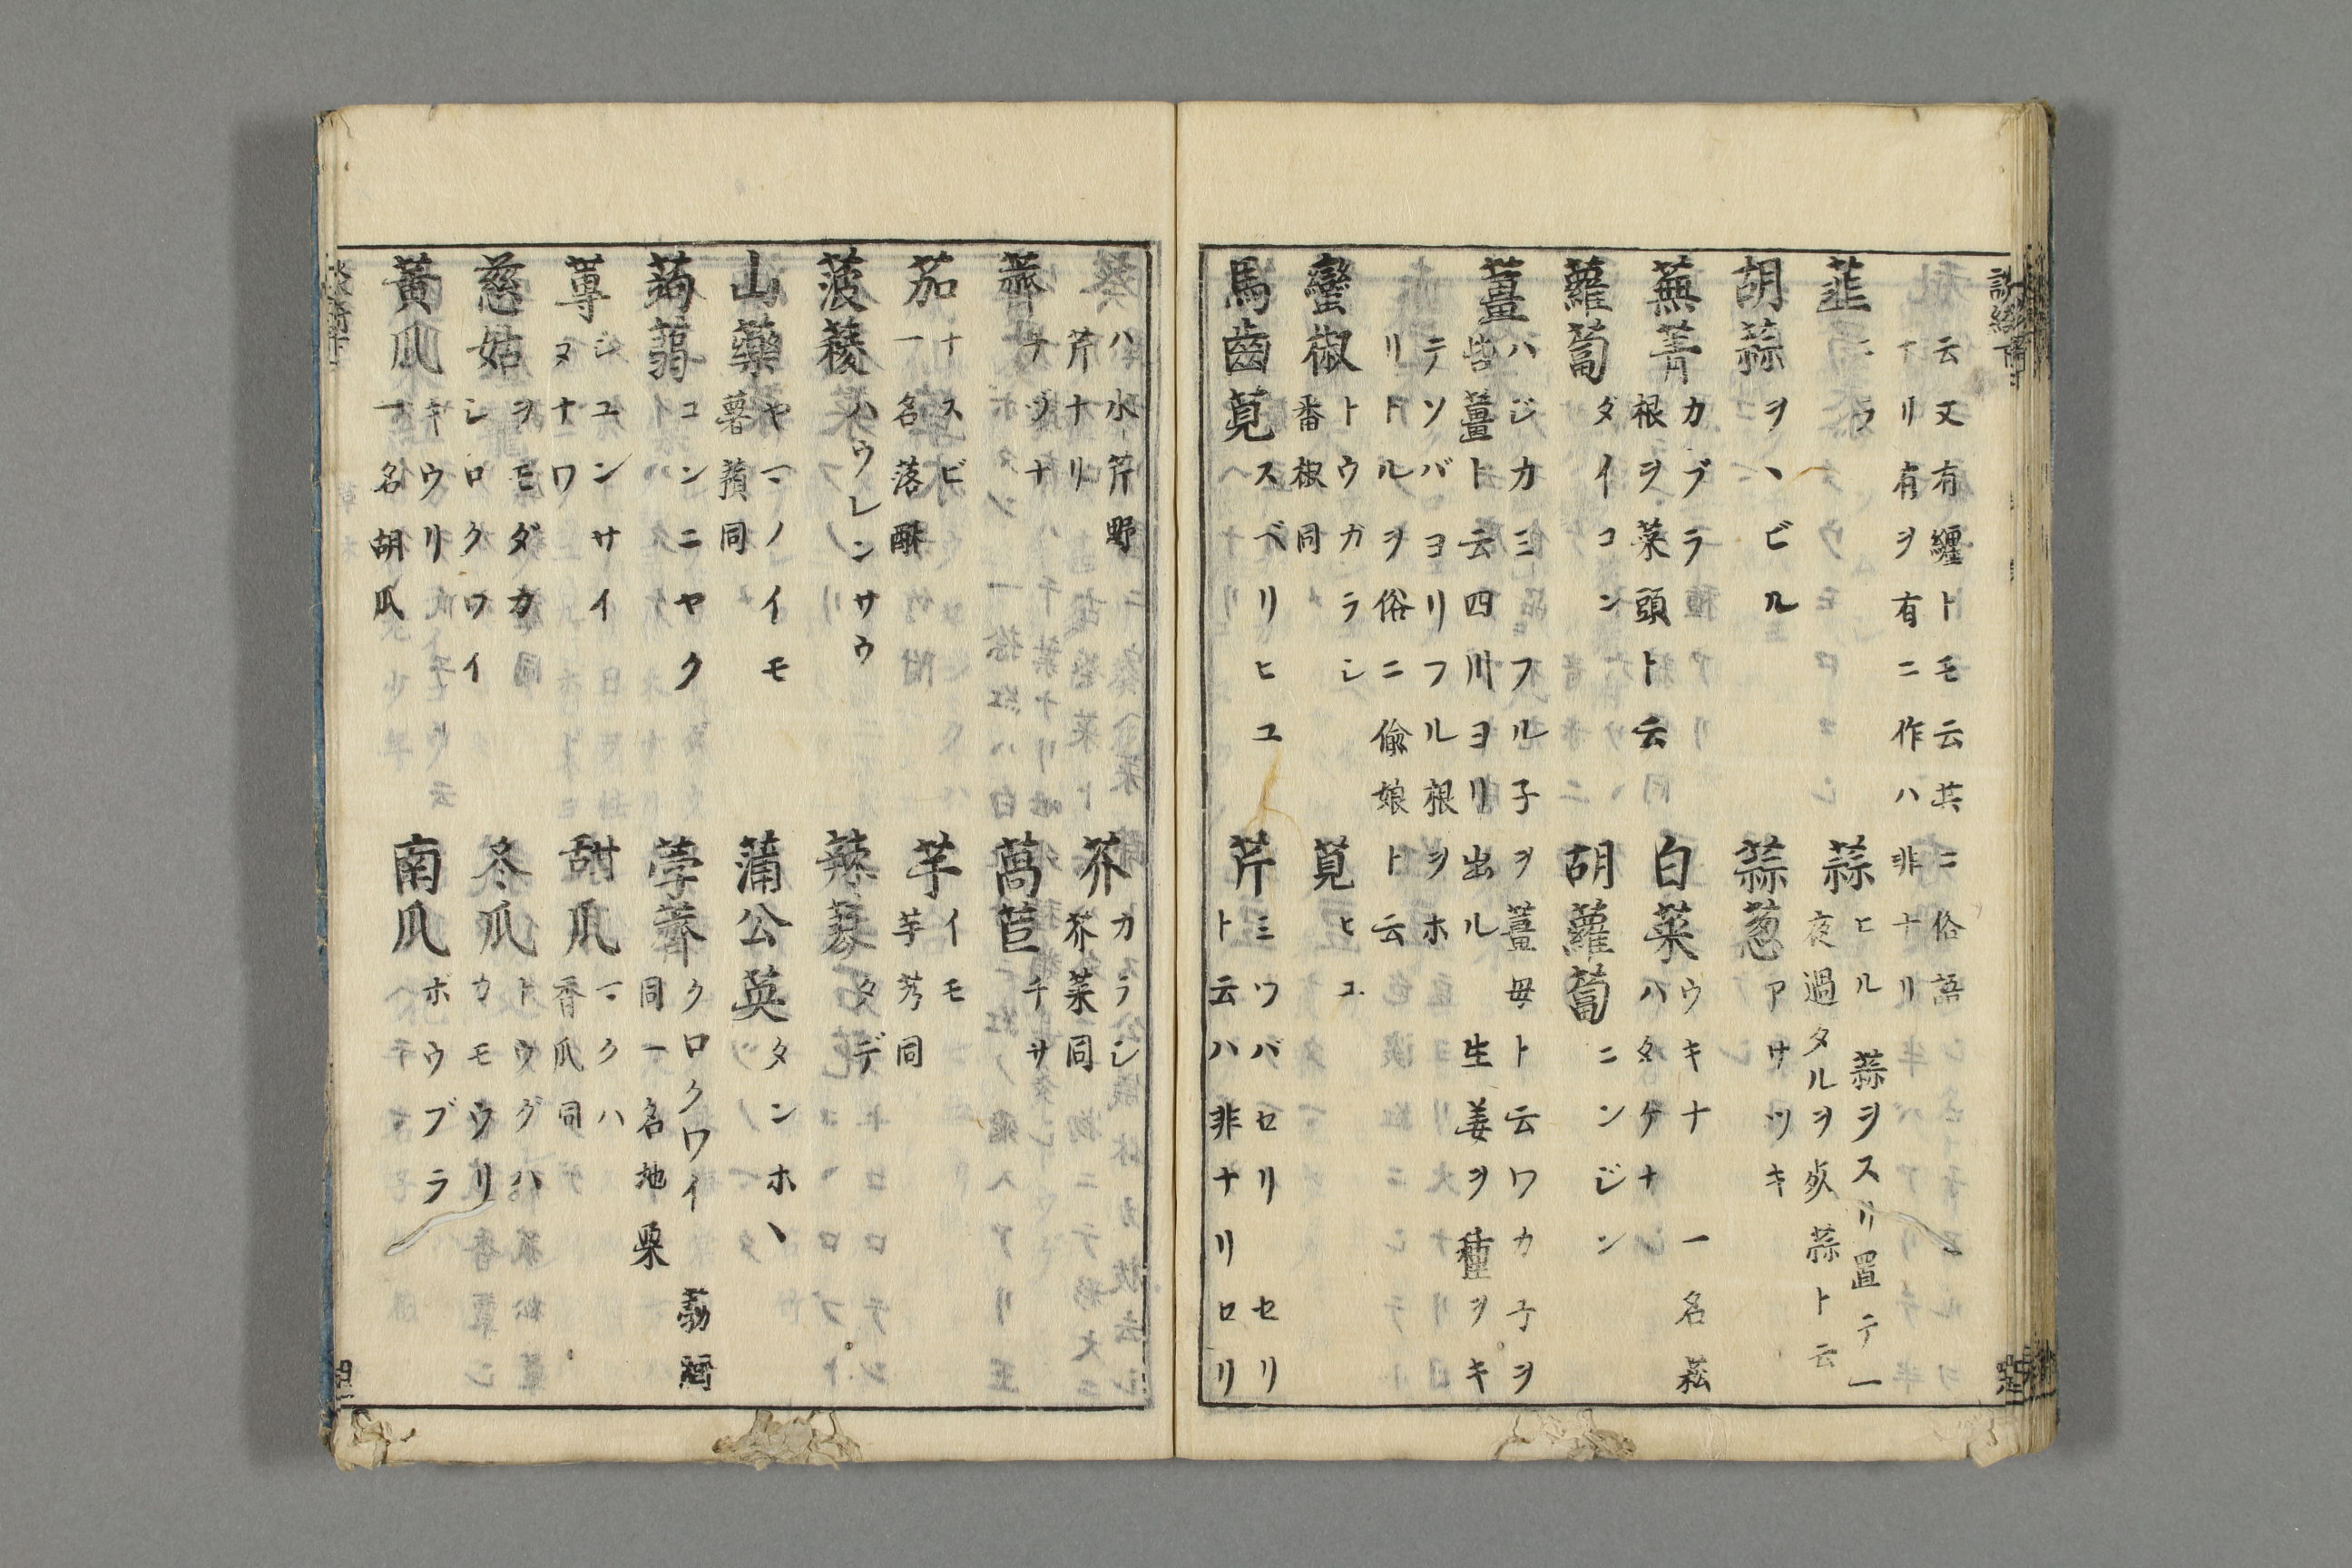 云又有纏トモ云其ニ俗語
ナリ有ヲ有ニ作ハ非ナリ
韮
ニラ
蒜
ヒル 蒜ヲスリ置テ一
夜過タルヲ歹蒜ト云
胡蒜
ヲヽビル
蒜葱
アサツキ
蕪菁
カブラ
根ヲ菜頭ト云
白菜
ウキナ 一名菘
ハタケナ
蘿蔔
ダイコン
胡蘿蔔
ニンジン
薑
ハジカミフル子ヲ薑母ト云ワカ子ヲ
紫薑ト云四川ヨリ出ル 生姜ヲ種ヲキ
テソバヨリフル根ヲホ
リトルヲ俗ニ偸娘ト云
蠻椒
トウガラシ
番椒同
莧
ヒユ
馬齒莧
スベリヒユ
芹
ミツバセリ セリ
ト云ハ非ナリロリ
ハ水芹野
芹ナリ
芥
カラシ
芥菜同
薺
ナヅナ
萵苣
チサ
茄
ナスビ
一名落酥
芋
イモ
芋艿同
菠薐
ハウレンサウ
辣蓼
タデ
山藥
ヤマノイモ
薯蕷同
蒲公英
タンホヽ
蒟蒻
コンニヤク
荸薺
クロクワイ
同一名地栗
蓴
ジユンサイ
ヌナワ
甜瓜
マクハ
香瓜同
慈姑
ヲモダカ
シロクワイ
冬瓜
トウグハ
カモウリ
黃瓜
キウリ
一名胡瓜
南瓜
ボウブラ